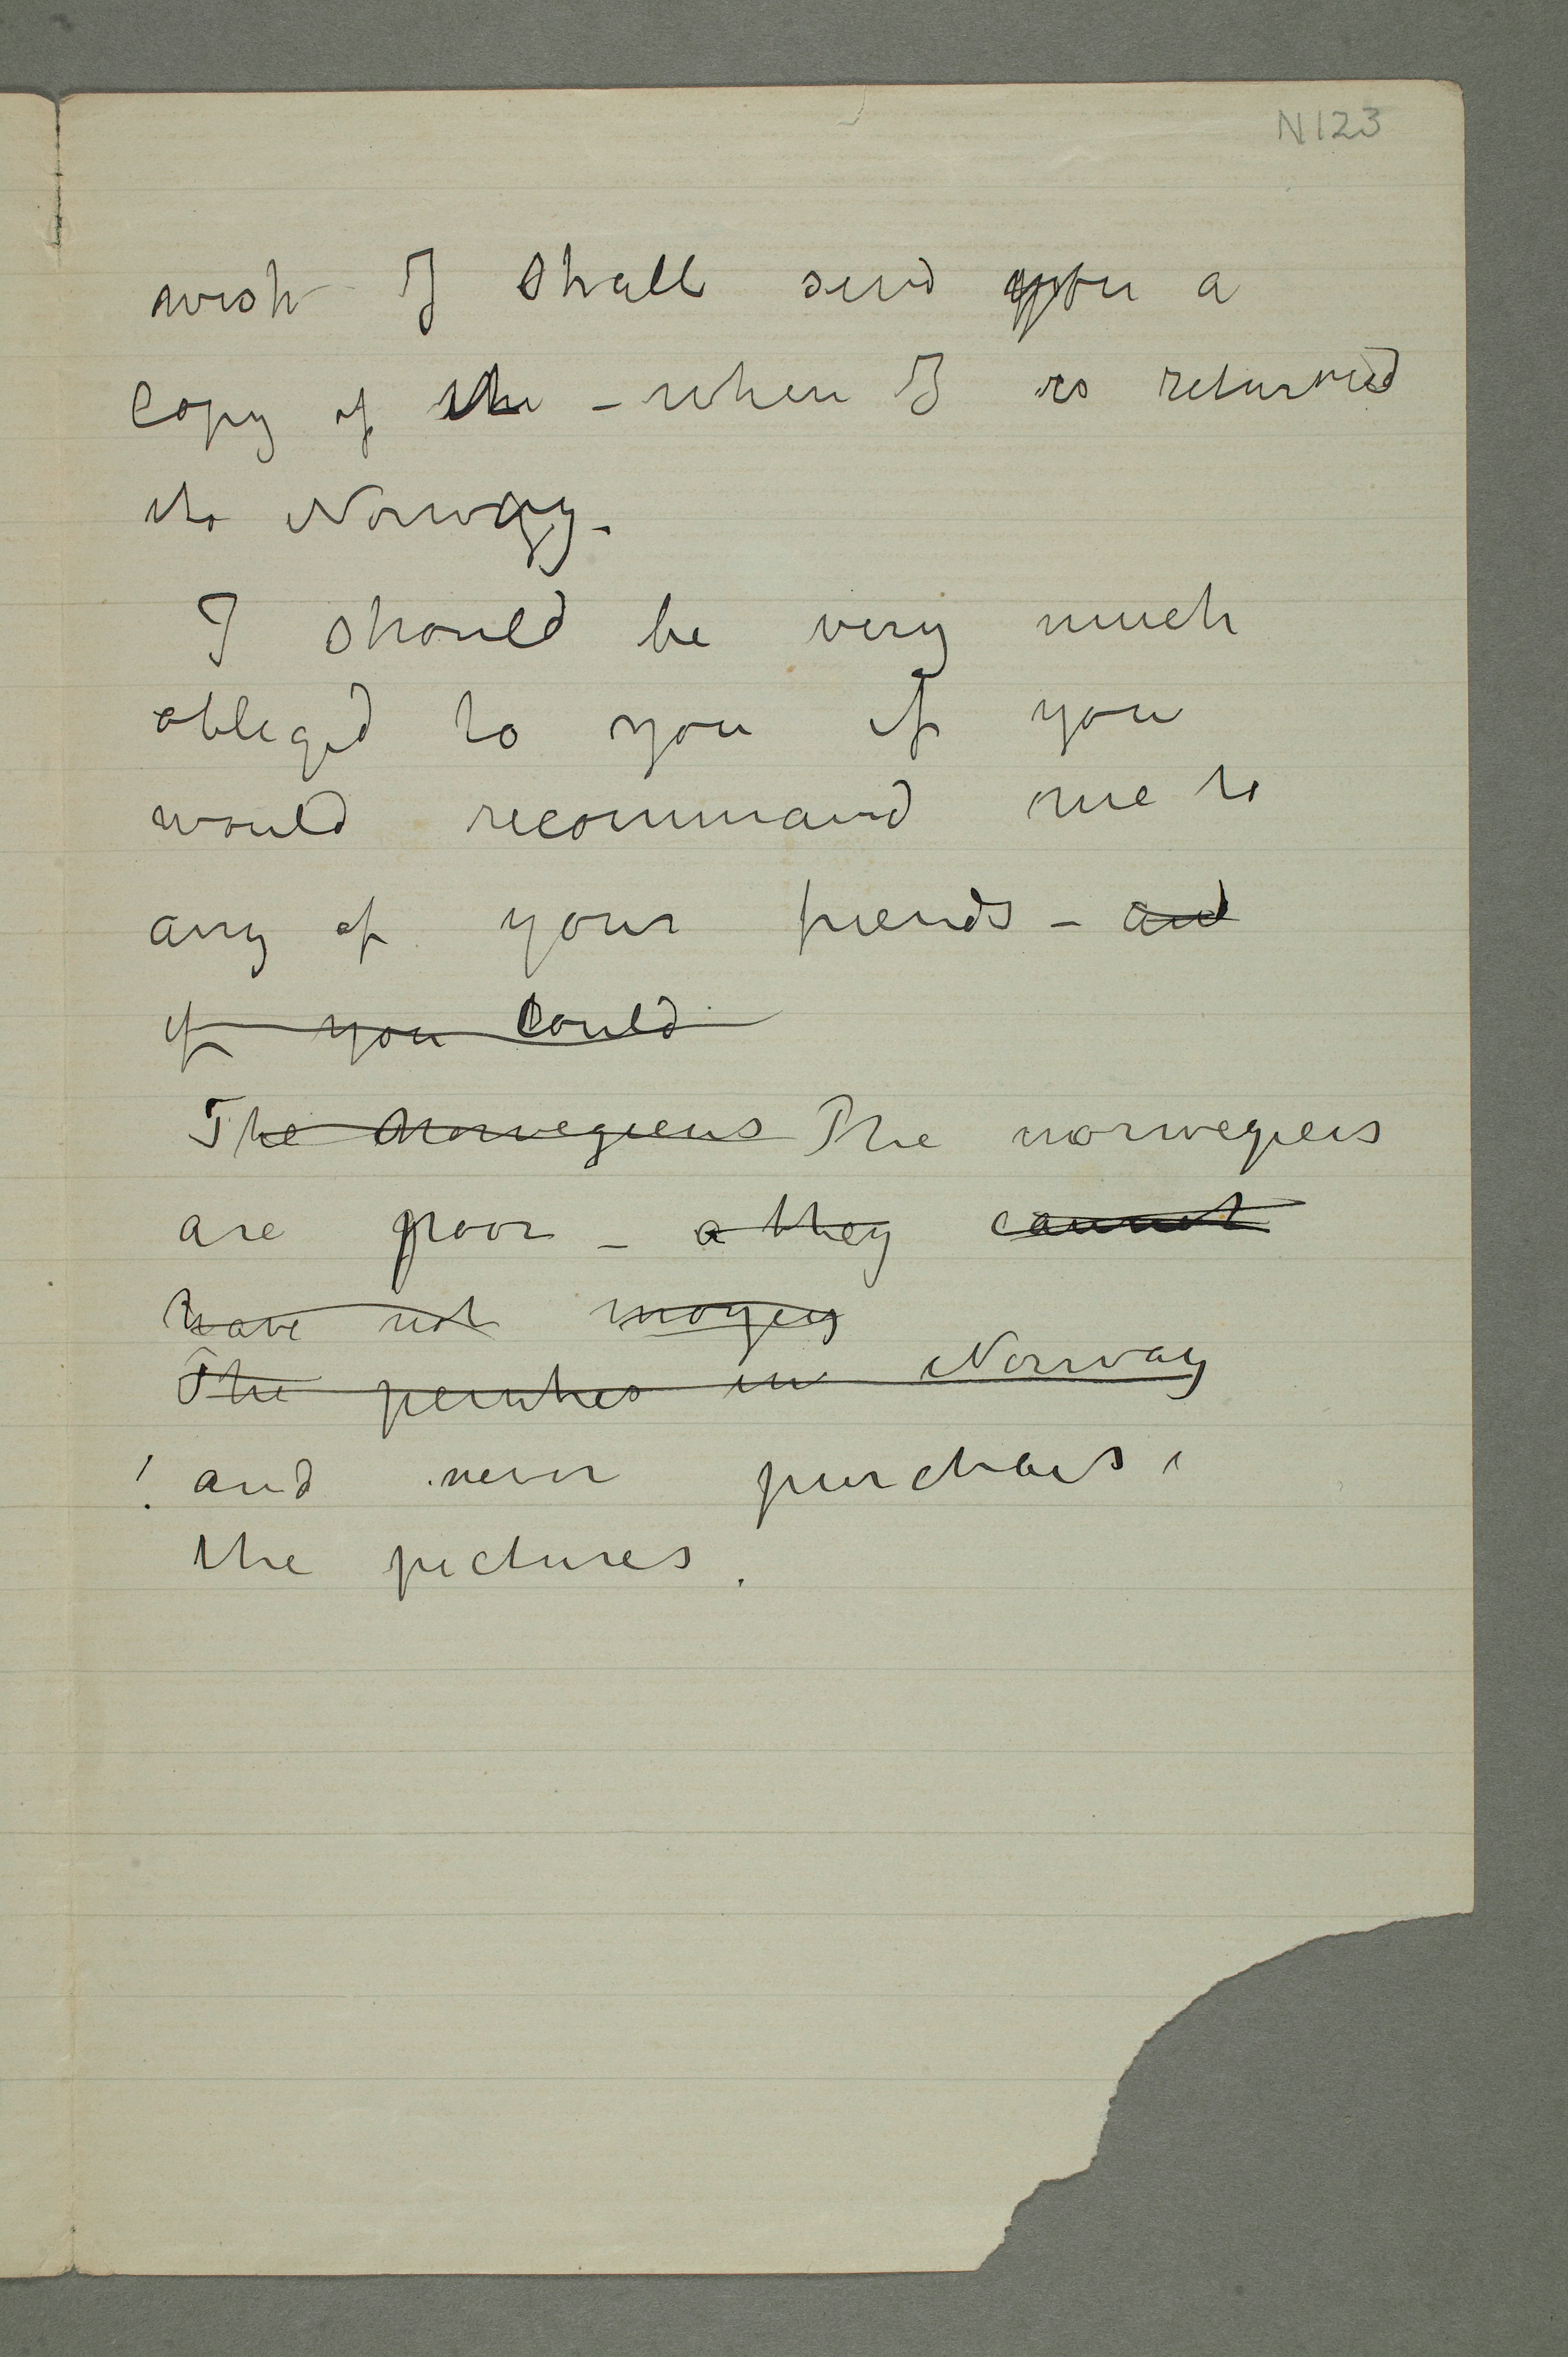 N123
wish I shall send you a
copy of the – when I is returned
to Norway.
I should be very much
obliged to you if you
would recommand me to
any of your friends – and
if you could
The Norwegiens The norwegiens
are poor – a they cannot
have not
The peintres in Norway
! and never purchais
the pictures.